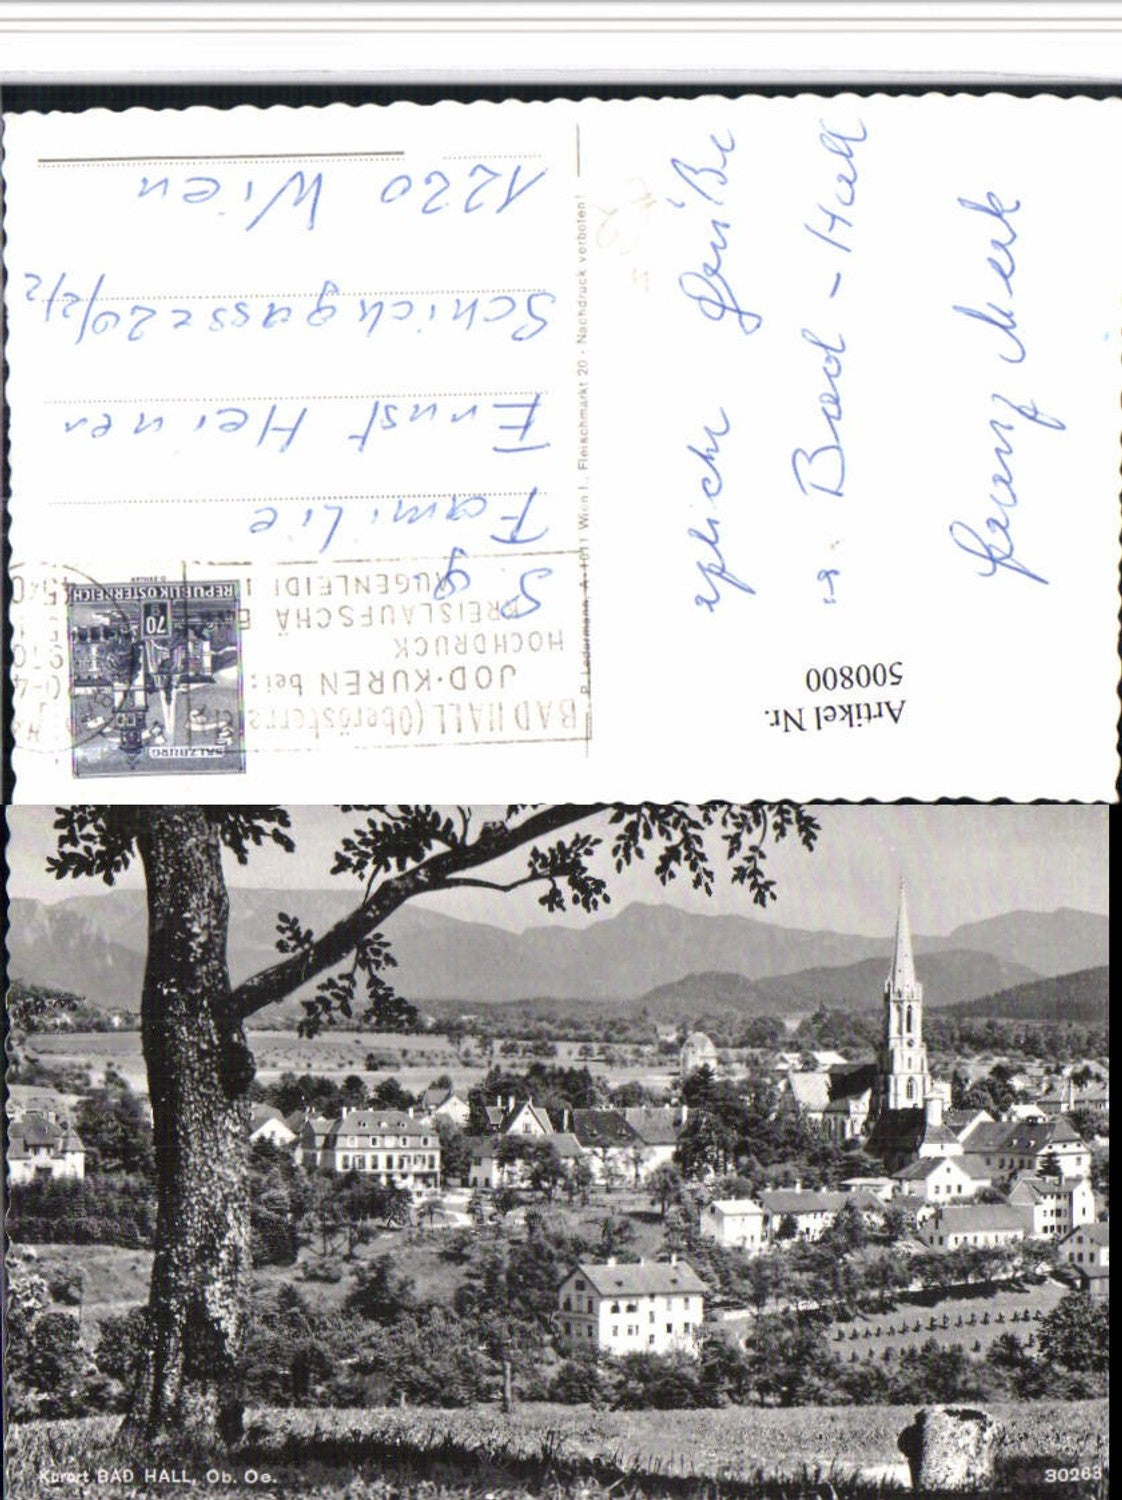 BAD HALL (Oberösterreich)
JOD·KUREN bei:
HOCHDRUCK
KREISLAUFSCHÄ
AUGENLEIDE
SALZBURG
70
g
REPUBLIK ÖSTERREICH
Familie
Ernst Heiner
Schickgasse 20/2/2
1220 Wien
P. Ledermann, A-1011 Wien I., Fleischmarkt 20 - Nachdruck verboten!
Grüße
a. Bad-Hall
Artikel Nr.
500800
Kurort BAD HALL, Ob. Oe.
30263